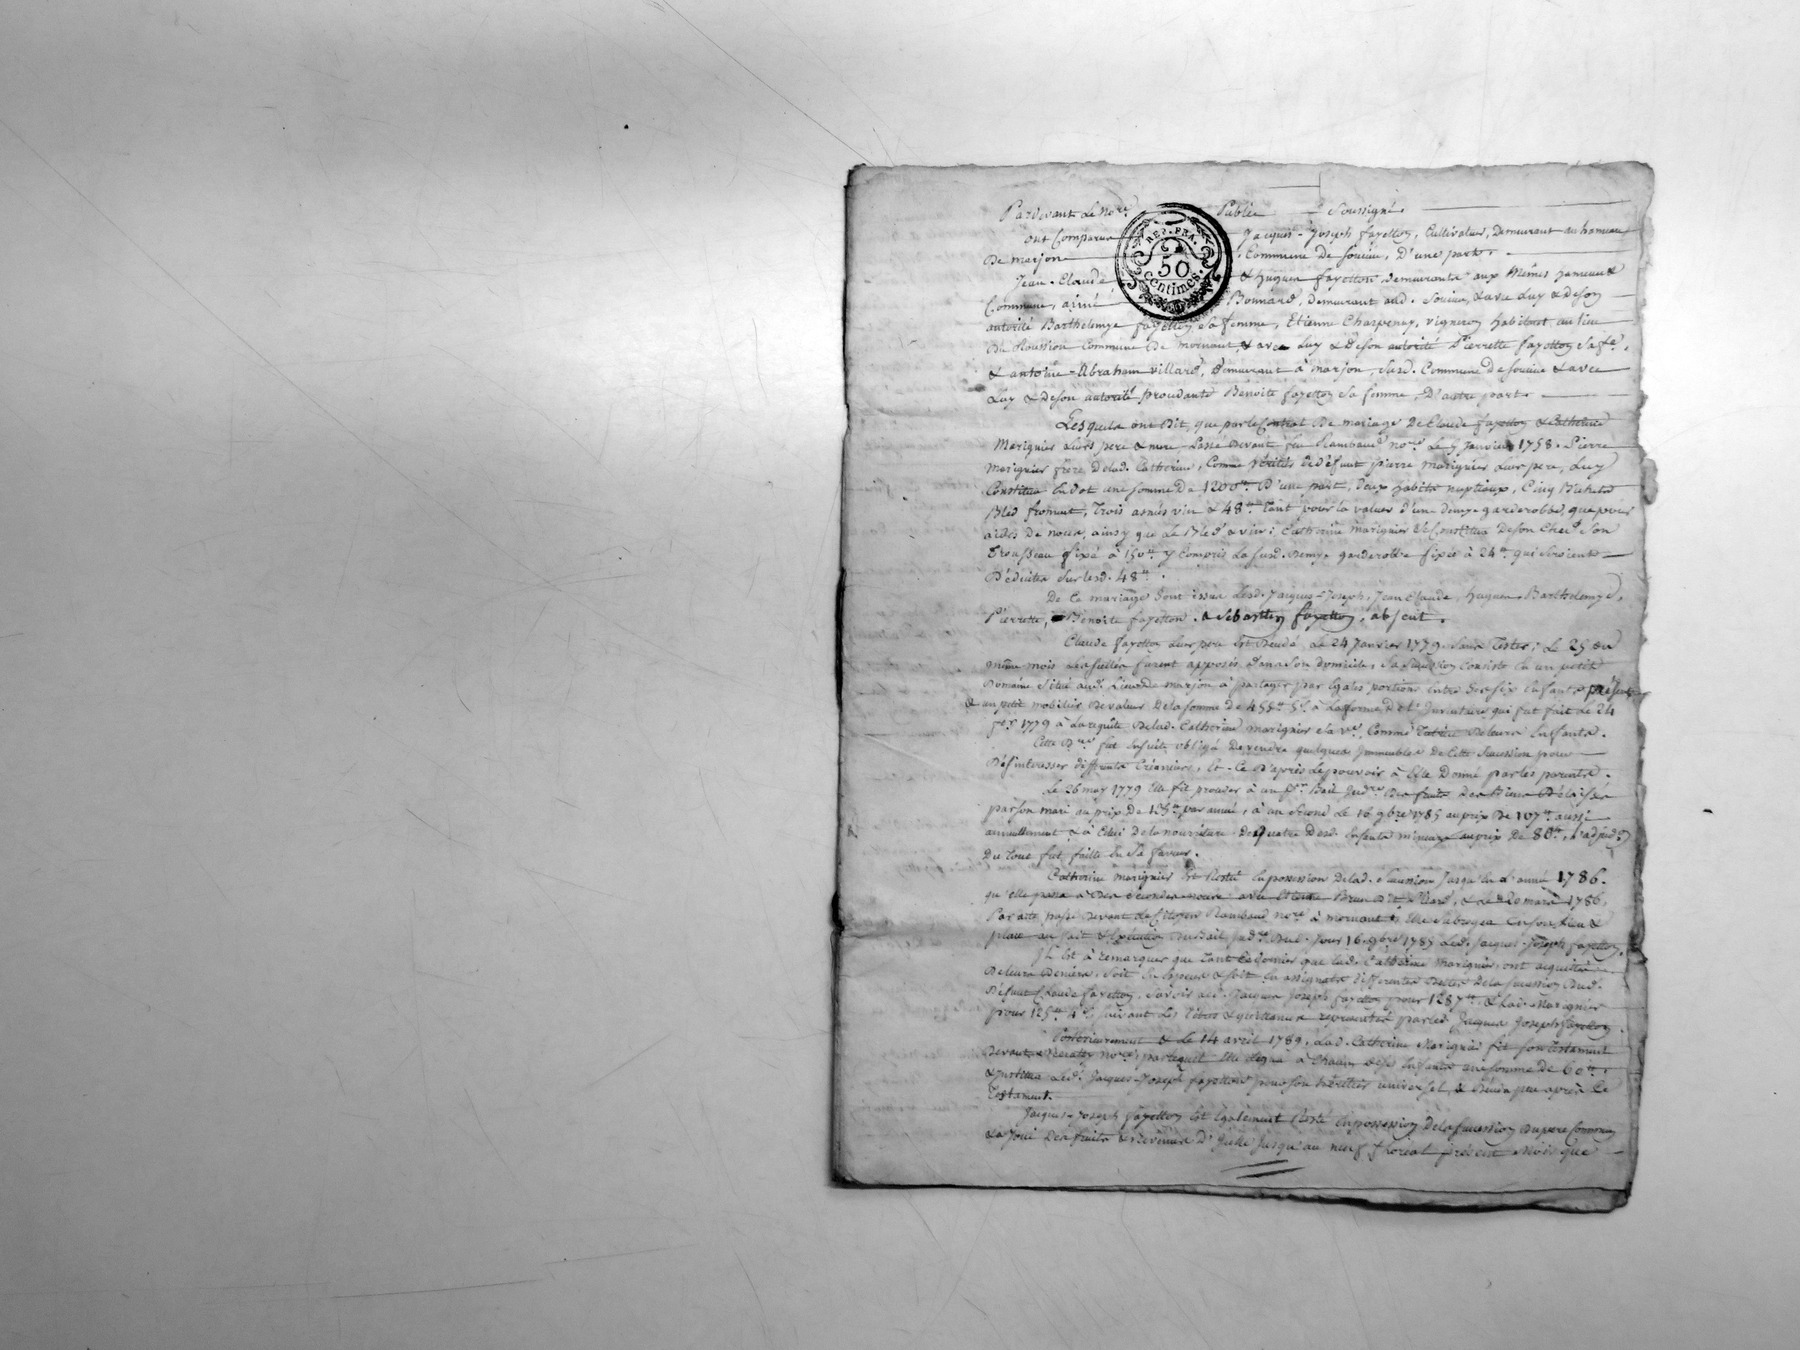 Pardevant Le No.re Public Soussigné
REP. FRA.
50
Centimes.
ont Comparus Jacques-Joseph fayetton, Cultivateur, Demeurant au hameau
De marjon Commune De Soucieu, D'une part.
Jean-Claude & hugues fayetton demeurants aux Mêmes hameau &
Commune, aimé Bonnard, demeurant aud. Soucieu, & avec Luy & De son
autorité Barthelemye fayetton sa femme, Etienne Charpenay, vigneron habitant au lieu
Du Roussion Commune De mornant, & avec Luy & De son autorité Pierrette fayetton sa fe.
& antoine-Abraham villard, Demeurant à marjon, susd. Commune de soucieu & avec
Luy & De son autorité procedante Benoite fayetton sa femme, D'autre part.
Lesquels ont Dit, que par le Contrat De mariage De Claude fayetton & Catherine
Marignier Leurs pere & mere, passé Devant feu Rambaud no.re Le 9 Janvier 1758. Pierre
Marignier frere Delad. Catherine, Comme heritier De défunt pierre marignier Leur pere, Luy
Constitua En Dot une somme De 1200.tt D'une part, Deux habits nuptiaux, Cinq Bichets
Bled froment, Trois asnés vin & 48.tt Tant pour la valeur d'une demye garderobbe, que pour
aides De noces, ainsy que Le Bled & vin; Catherine marignier se Constitua De son Chef Son
Trousseau fixé à 150.tt y Compris La susd. Demye garderobbe fixée à 24.tt qui seroient
Déduites sur lesd. 48.tt.
De Ce mariage Sont issus Lesd. Jacques-Joseph, Jean Claude, hugues, Barthelemye,
Pierrette, Benoite fayetton. & Sebastien fayetton, absent.
Claude fayetton Leur pere Est Decedé Le 24 Janvier 1779. Sans Tester; Le 25 du
même mois Les scellés furent apposés Dans son Domicile, Sa Succession Consiste En un petit
Domaine Situé aud. Lieu De marjon à partager par Egales portions Entre Ses six Enfants présents
& un petit mobilier De valeur De la somme De 455.tt 5.s à La forme De L'Inventaire qui fut fait Le 24
fev.r 1779 à La requête Delad. Catherine marignier sa v.e Comme Tutrice De leurs Enfants.
Cette fut Ensuite obligé De vendre quelques Immeubles De Cette Succession pour
Désinteresser différents Créanciers, & Ce D'après Le pouvoir à Elle Donné par les parents.
Le 26 may 1779 Elle fit proceder à un Bail Des fruits Des Biens Délaissés
par son mari au prix De par année, à un second Le 16 9bre 1785 au prix De 107.tt aussi
annuellement & à Celui De la nourriture De quatre Desd. Enfants mineurs au prix De 80.tt, L'adjud.on
Du Tout fut faitte En Sa faveur.
Catherine marignier Est Resté En possession Delad. Succession Jusqu'En L'année 1786.
qu'Elle passa à Des Secondes noces avec Etienne Brun & Le 20 mars 1786,
Par acte passé Devant Le Citoyen Rambaud no.re à mornant Elle Subrogea En son Lieu &
place au fait & Exécution Du Bail Jud.re Dud. Jour 16. 9bre 1785 Led. Jacques-Joseph fayetton.
Il Est à remarquer que Tant Ce Dernier que Lad. Catherine Marignier ont acquitté
De leurs Deniers, soit En Especes & soit En assignats différentes Dettes De la succession Dud.
Défunt Claude fayetton, Savoir Led. Jacques Joseph fayetton pour 1287.tt & Lad. Marignier
pour 125.tt 4.s suivant Les Titres & quittances représentés par led. Jacques Joseph fayetton.
Postérieurement & Le 14 avril 1789, Lad. Catherine Marignier fit son Testament
Devant no.re, par lequel Elle Légua à Chacun De ses Enfants une somme De 60.tt
& Institua Led. Jacques-Joseph fayetton pour son héritier universel, & Déceda peu après Ce
Testament.
Jacques-Joseph fayetton Est Egalement Resté En possession De la Succession Du pere Commun
& a Joui Des fruits & revenus D'Icelle Jusqu'au neuf floréal présent Mois que